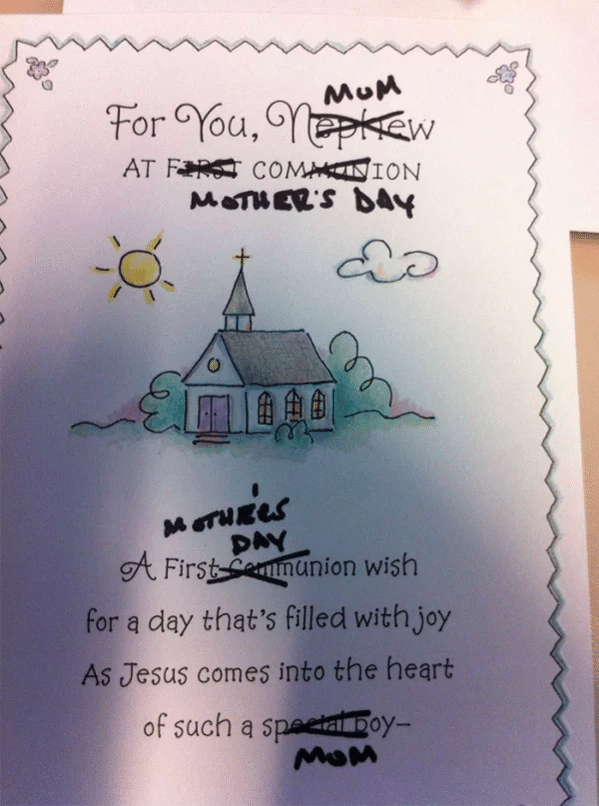 MUM
For You, Nephew
AT FIRST COMMUNION
MOTHER'S DAY
MOTHER'S
DAY
A First Communion wish
for a day that's filled with joy
As Jesus comes into the heart
of such a special boy–
MOM